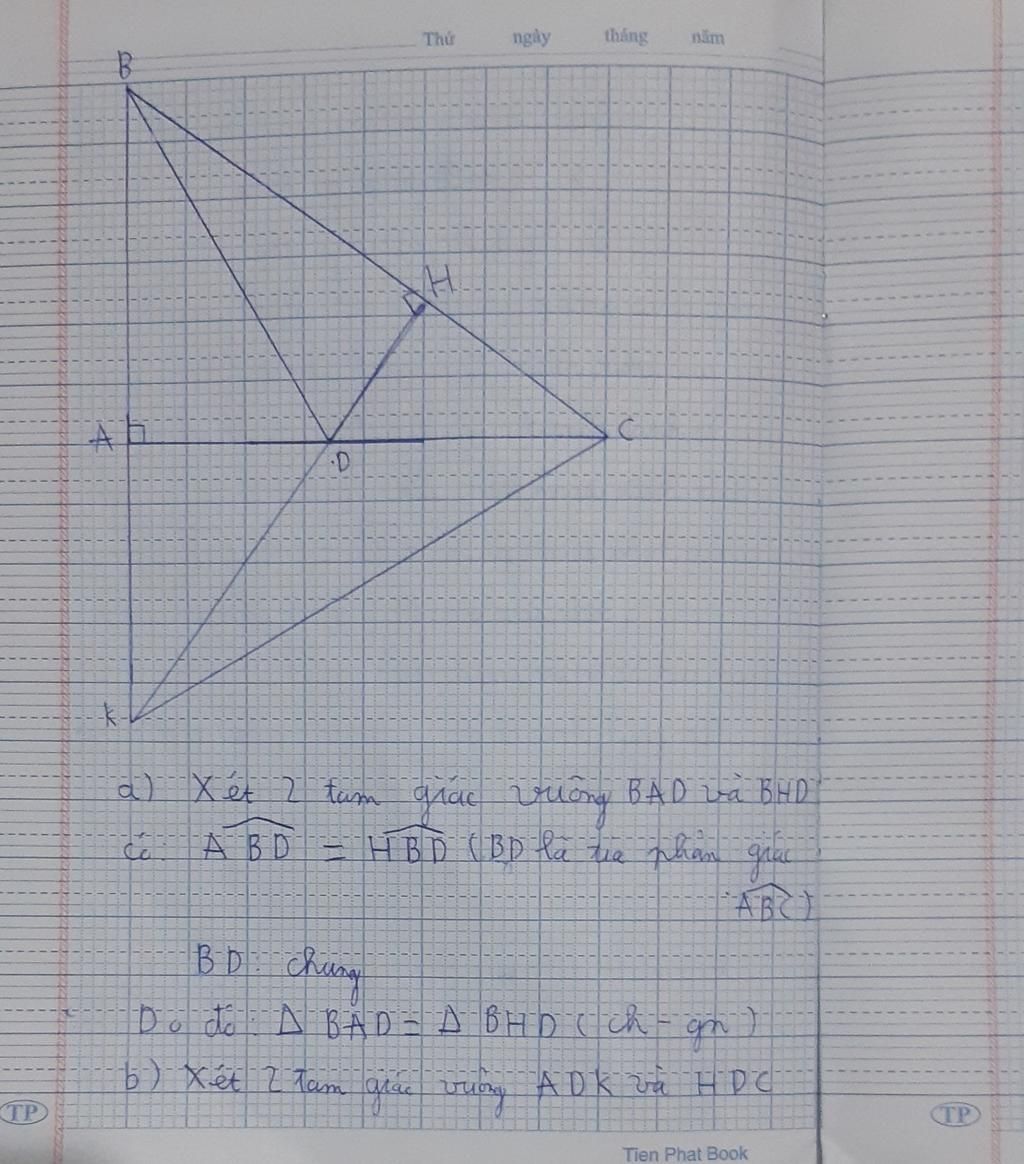 Thứ ngày tháng năm
B
H
A
C
D
K
a) Xét 2 tam giác vuông BAD và BHD
có: ABD = HBD (BD là tia phân giác
ABC)
BD: chung
Do đó: Δ BAD = Δ BHD (ch - gn)
b) Xét 2 tam giác vuông ADK và HDC
TP
TP
Tien Phat Book